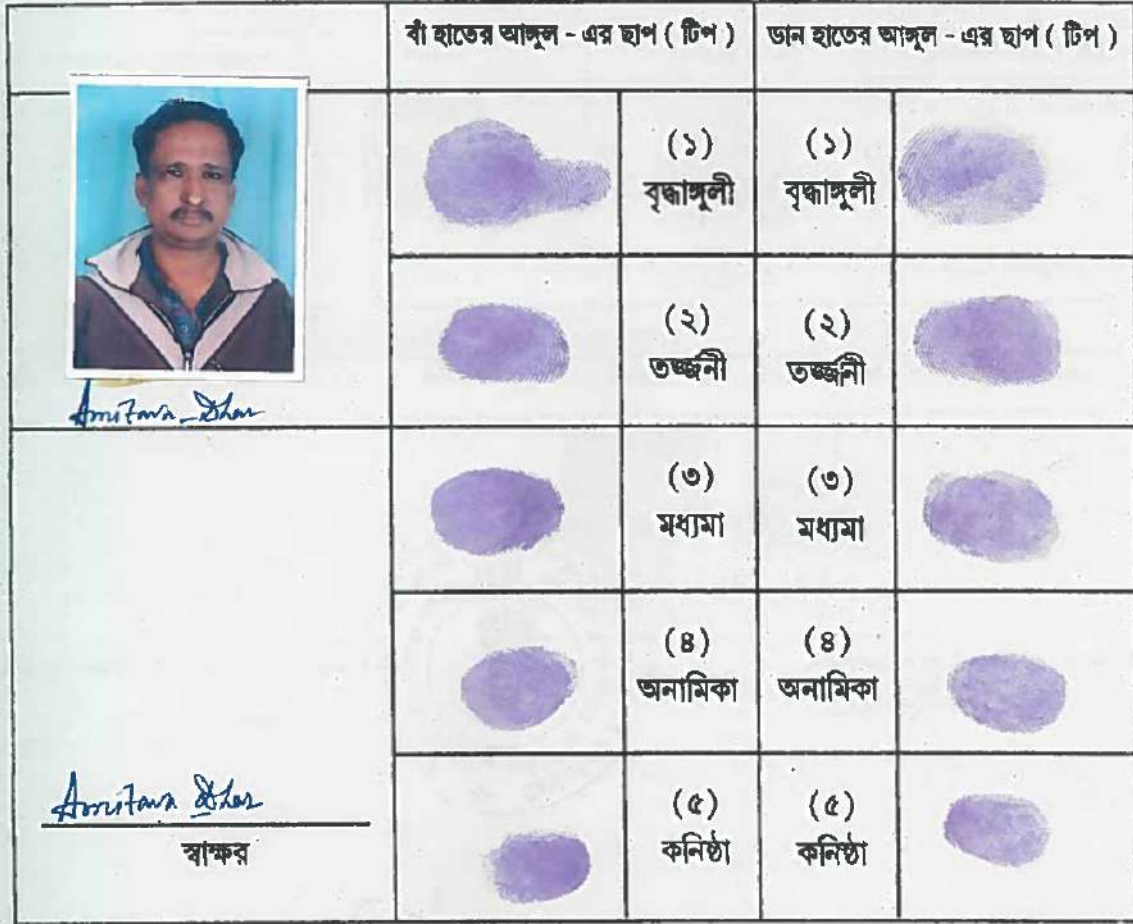 বাঁ হাতের আঙ্গুল - এর ছাপ ( টিপ )
ডান হাতের আঙ্গুল - এর ছাপ ( টিপ )
(১)
বৃদ্ধাঙ্গুলী
(১)
বৃদ্ধাঙ্গুলী
(২)
তর্জ্জনী
(২)
তর্জ্জনী
Amitava Dhar
(৩)
মধ্যমা
(৩)
মধ্যমা
(৪)
অনামিকা
(৪)
অনামিকা
(৫)
কনিষ্ঠা
(৫)
কনিষ্ঠা
Amitava Dhar
স্বাক্ষর